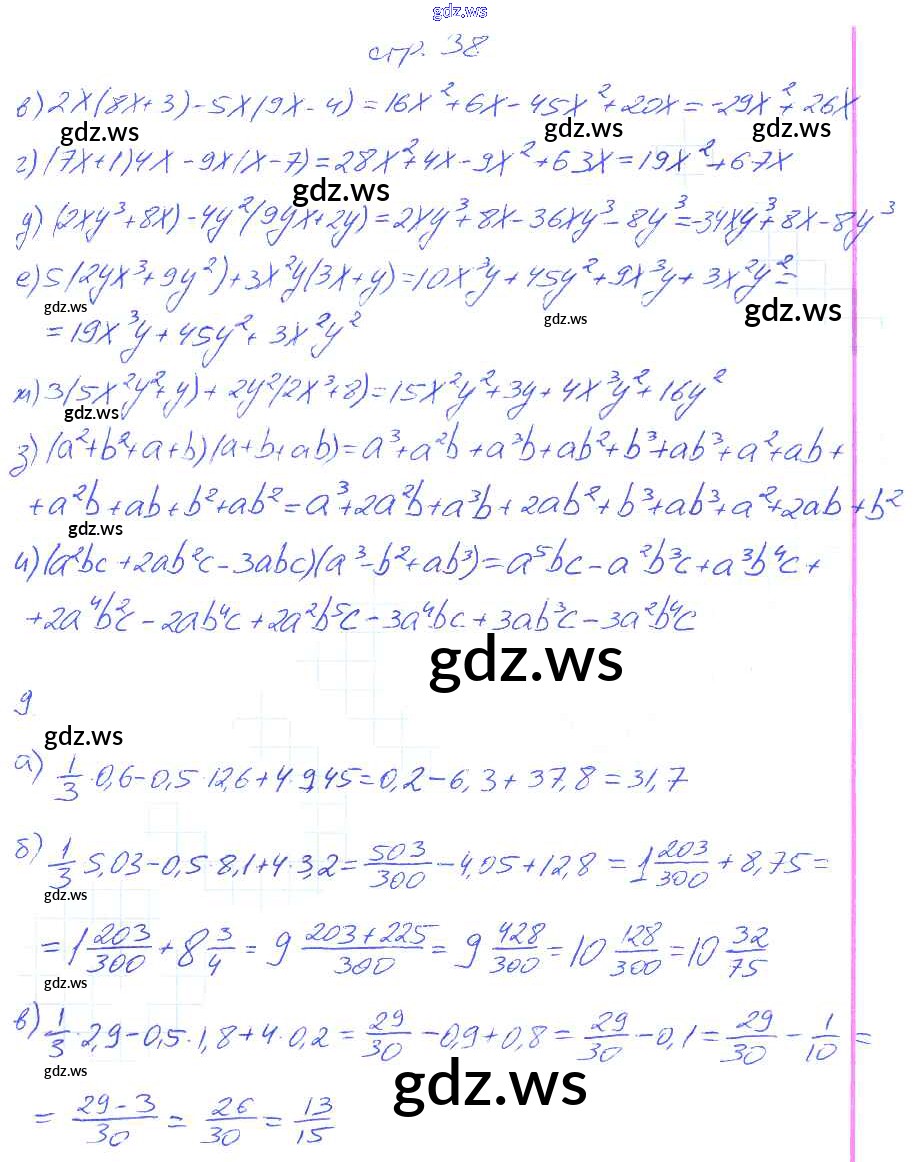 gdz.ws
стр. 38
в) 2x(8x+3)-5x(9x-4)=16x²+6x-45x²+20x=-29x²+26x
gdz.ws gdz.ws gdz.ws
г) (7x+1)4x-9x(x-7)=28x²+4x-9x²+63x=19x²+67x
gdz.ws
д) (2xy³+8x)-4y²(9yx+2y)=2xy³+8x-36xy³-8y³=-34xy³+8x-8y³
е) 5(2yx³+9y²)+3x²y(3x+y)=10x³y+45y²+9x³y+3x²y²=
gdz.ws gdz.ws gdz.ws
=19x³y+45y²+3x²y²
ж) 3(5x²y²+y)+2y²(2x³+8)=15x²y²+3y+4x³y²+16y²
gdz.ws
з) (a²+b²+a+b)(a+b+ab)=a³+a²b+a³b+ab²+b³+ab³+a²+ab+
+a²b+ab+b²+ab²=a³+2a²b+a³b+2ab²+b³+ab³+a²+2ab+b²
gdz.ws
и) (a²bc+2ab²c-3abc)(a³-b²+ab³)=a⁵bc-a²b³c+a³b⁴c+
+2a⁴b²c-2ab⁴c+2a²b⁵c-3a⁴bc+3ab³c-3a²b⁴c
gdz.ws
9
gdz.ws
а) 1/3·0,6-0,5·12,6+4·9,45=0,2-6,3+37,8=31,7
б) 1/3·5,03-0,5·8,1+4·3,2=503/300-4,05+12,8=1 203/300+8,75=
gdz.ws
=1 203/300+8 3/4=9 (203+225)/300=9 428/300=10 128/300=10 32/75
в) 1/3·2,9-0,5·1,8+4·0,2=29/30-0,9+0,8=29/30-0,1=29/30-1/10=
gdz.ws gdz.ws
=(29-3)/30=26/30=13/15